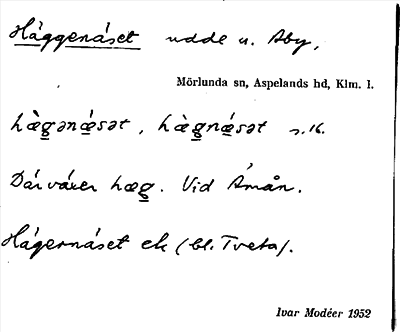 Häggenäset udde u. Åby,
Mörlunda sn, Aspelands hd, Klm. l.
hæ̀gənǽsət, hæ̀gnǽsət n.16.
Där växer hæg. Vid Åmån.
Hägernäset ek (bl. Tveta).
Ivar Modéer 1952